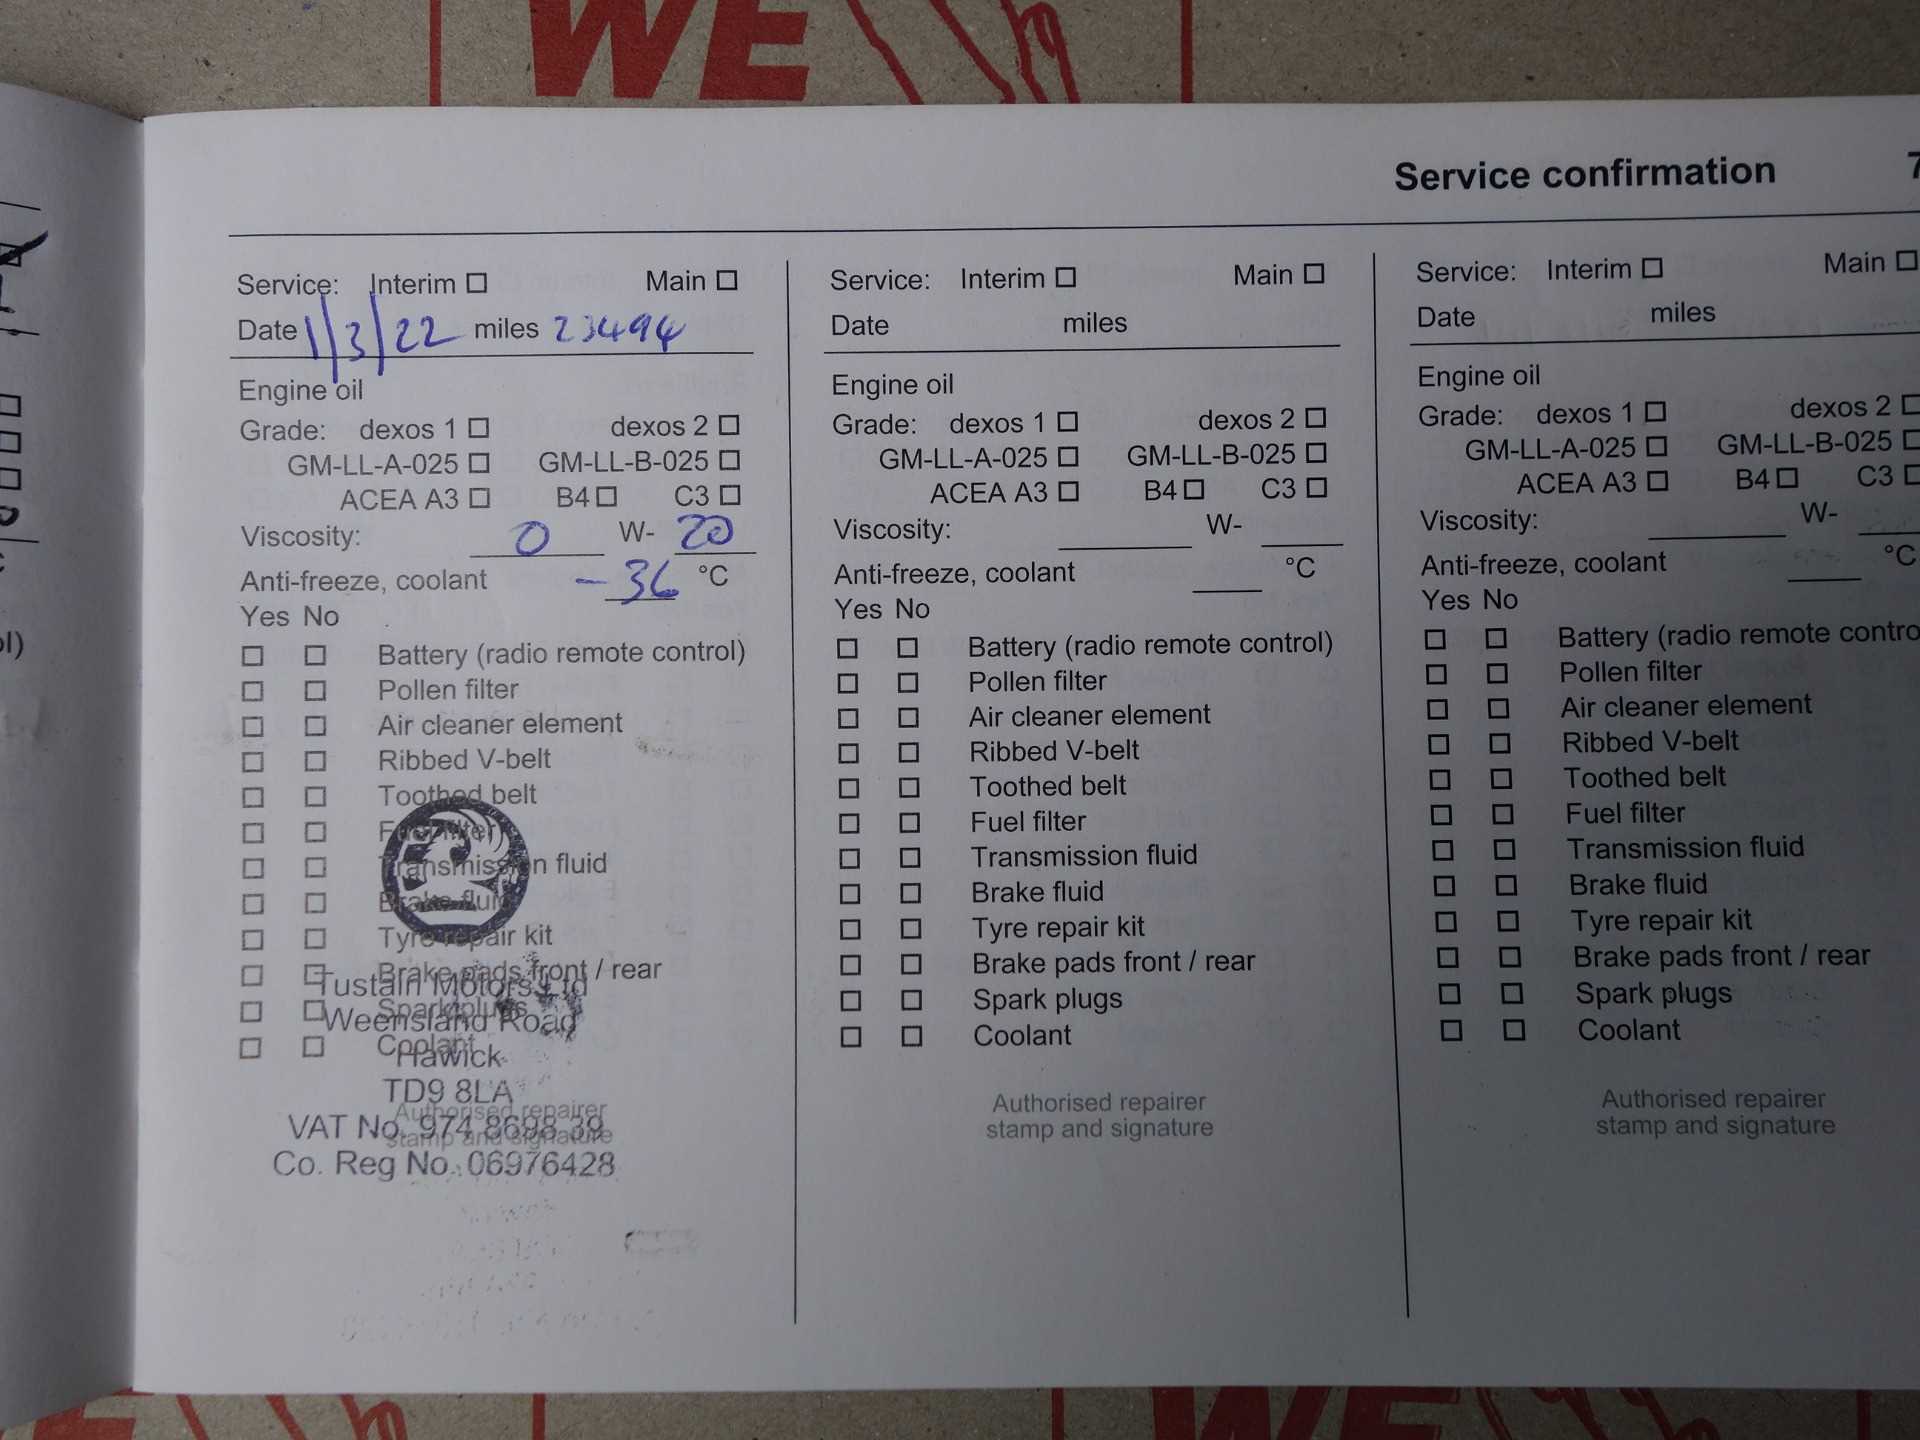 WE
Service confirmation 7
Service: Interim ☐ Main ☐
Date 1/3/22 miles 23494
Engine oil
Grade: dexos 1 ☐ dexos 2 ☐
GM-LL-A-025 ☐ GM-LL-B-025 ☐
ACEA A3 ☐ B4 ☐ C3 ☐
Viscosity: 0 W- 20
Anti-freeze, coolant -36 °C
Yes No
☐ ☐ Battery (radio remote control)
☐ ☐ Pollen filter
☐ ☐ Air cleaner element
☐ ☐ Ribbed V-belt
☐ ☐ Toothed belt
☐ ☐ Fuel filter
☐ ☐ Transmission fluid
☐ ☐ Brake fluid
☐ ☐ Tyre repair kit
☐ ☐ Brake pads front / rear
☐ ☐ Spark plugs
☐ ☐ Coolant
Authorised repairer
stamp and signature
Tustain Motors Ltd
Weensland Road
Hawick
TD9 8LA
VAT No. 974 8698 39
Co. Reg No. 06976428
Service: Interim ☐ Main ☐
Date miles
Engine oil
Grade: dexos 1 ☐ dexos 2 ☐
GM-LL-A-025 ☐ GM-LL-B-025 ☐
ACEA A3 ☐ B4 ☐ C3 ☐
Viscosity: W-
Anti-freeze, coolant °C
Yes No
☐ ☐ Battery (radio remote control)
☐ ☐ Pollen filter
☐ ☐ Air cleaner element
☐ ☐ Ribbed V-belt
☐ ☐ Toothed belt
☐ ☐ Fuel filter
☐ ☐ Transmission fluid
☐ ☐ Brake fluid
☐ ☐ Tyre repair kit
☐ ☐ Brake pads front / rear
☐ ☐ Spark plugs
☐ ☐ Coolant
Authorised repairer
stamp and signature
Service: Interim ☐ Main ☐
Date miles
Engine oil
Grade: dexos 1 ☐ dexos 2 ☐
GM-LL-A-025 ☐ GM-LL-B-025 ☐
ACEA A3 ☐ B4 ☐ C3 ☐
Viscosity: W-
Anti-freeze, coolant °C
Yes No
☐ ☐ Battery (radio remote contro
☐ ☐ Pollen filter
☐ ☐ Air cleaner element
☐ ☐ Ribbed V-belt
☐ ☐ Toothed belt
☐ ☐ Fuel filter
☐ ☐ Transmission fluid
☐ ☐ Brake fluid
☐ ☐ Tyre repair kit
☐ ☐ Brake pads front / rear
☐ ☐ Spark plugs
☐ ☐ Coolant
Authorised repairer
stamp and signature
WE